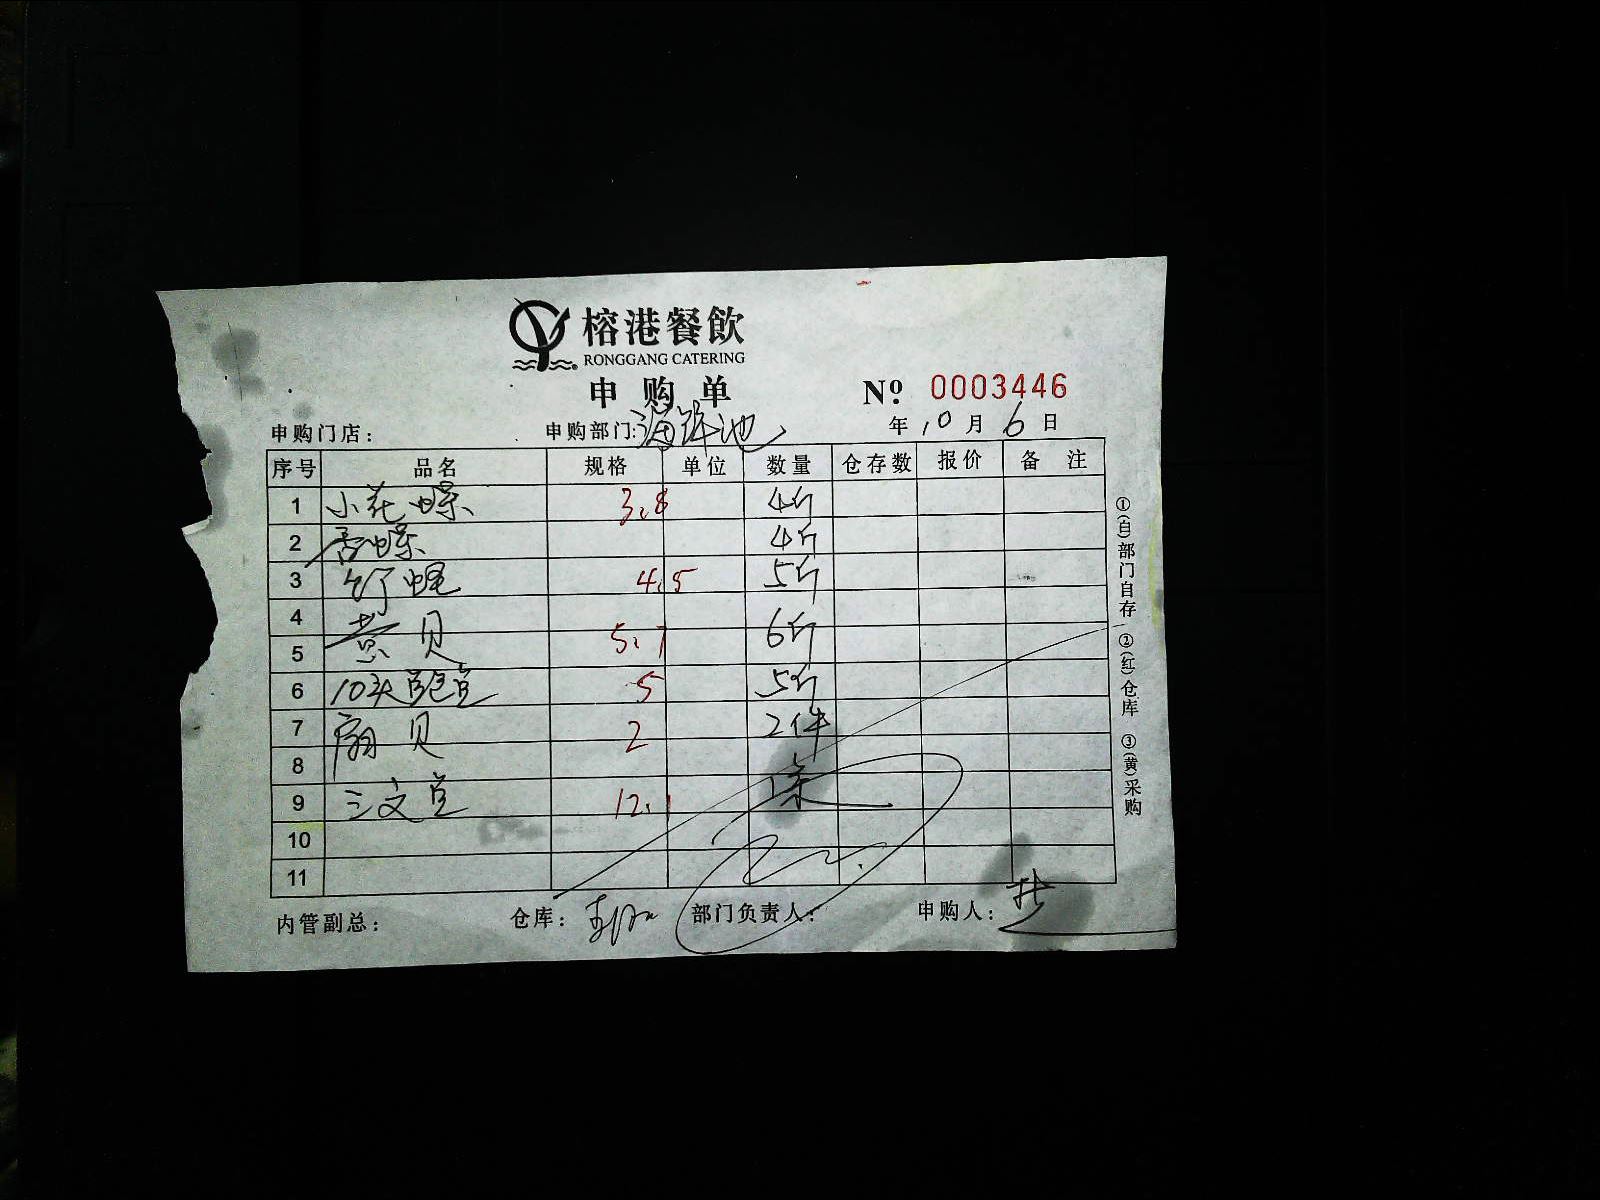 榕港餐飲
RONGGANG CATERING
申购单
Nº: 0003446
申购门店: 申购部门: 海鲜池 年 10 月 6 日
序号 品名 规格 单位 数量 仓存数 报价 备注
1 小花螺 3.8 4斤
2 香螺 4斤
3 竹蛏 4.5 5斤
4
5 黄贝 5.1 6斤
6 10头鲍鱼 5 5斤
7 扇贝 2 2件
8
9 三文鱼 12.1 1条
10
11
内管副总: 仓库: 部门负责人: 申购人:
①(白)部门自存 ②(红)仓库 ③(黄)采购